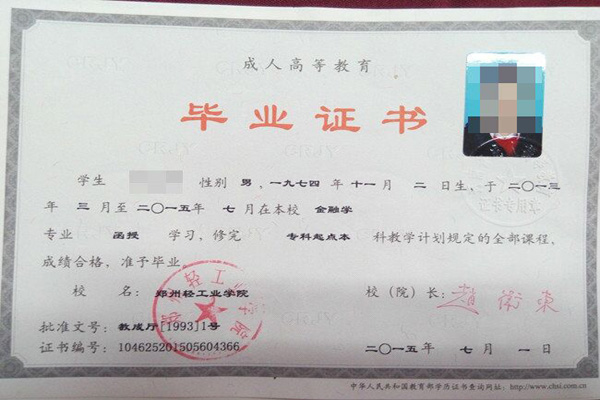 成人高等教育
毕业证书
学生 性别 男，一九七四 年 十一月 二 日生、于 二〇一三
年 三 月至 二〇一五年 七 月在本校 金融学
专业 函授 学习，修完 专科起点本 科教学计划规定的全部课程，
成绩合格，准予毕业
校 名：郑州轻工业学院
校（院）长：
批准文号：教成厅[1993]1号
证书编号：104625201505604366
二〇一五年 七 月 一 日
中华人民共和国教育部学历证书查询网址：http://www.chsi.com.cn